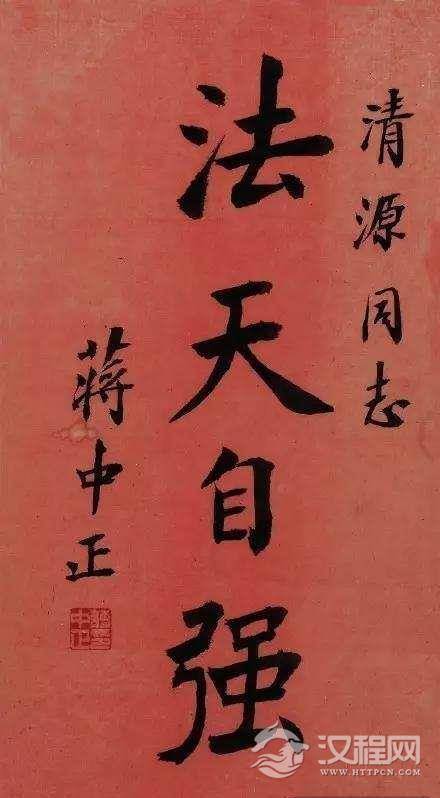 清源同志
法天自强
蔣中正
汉程网
WWW.HTTPCN.COM